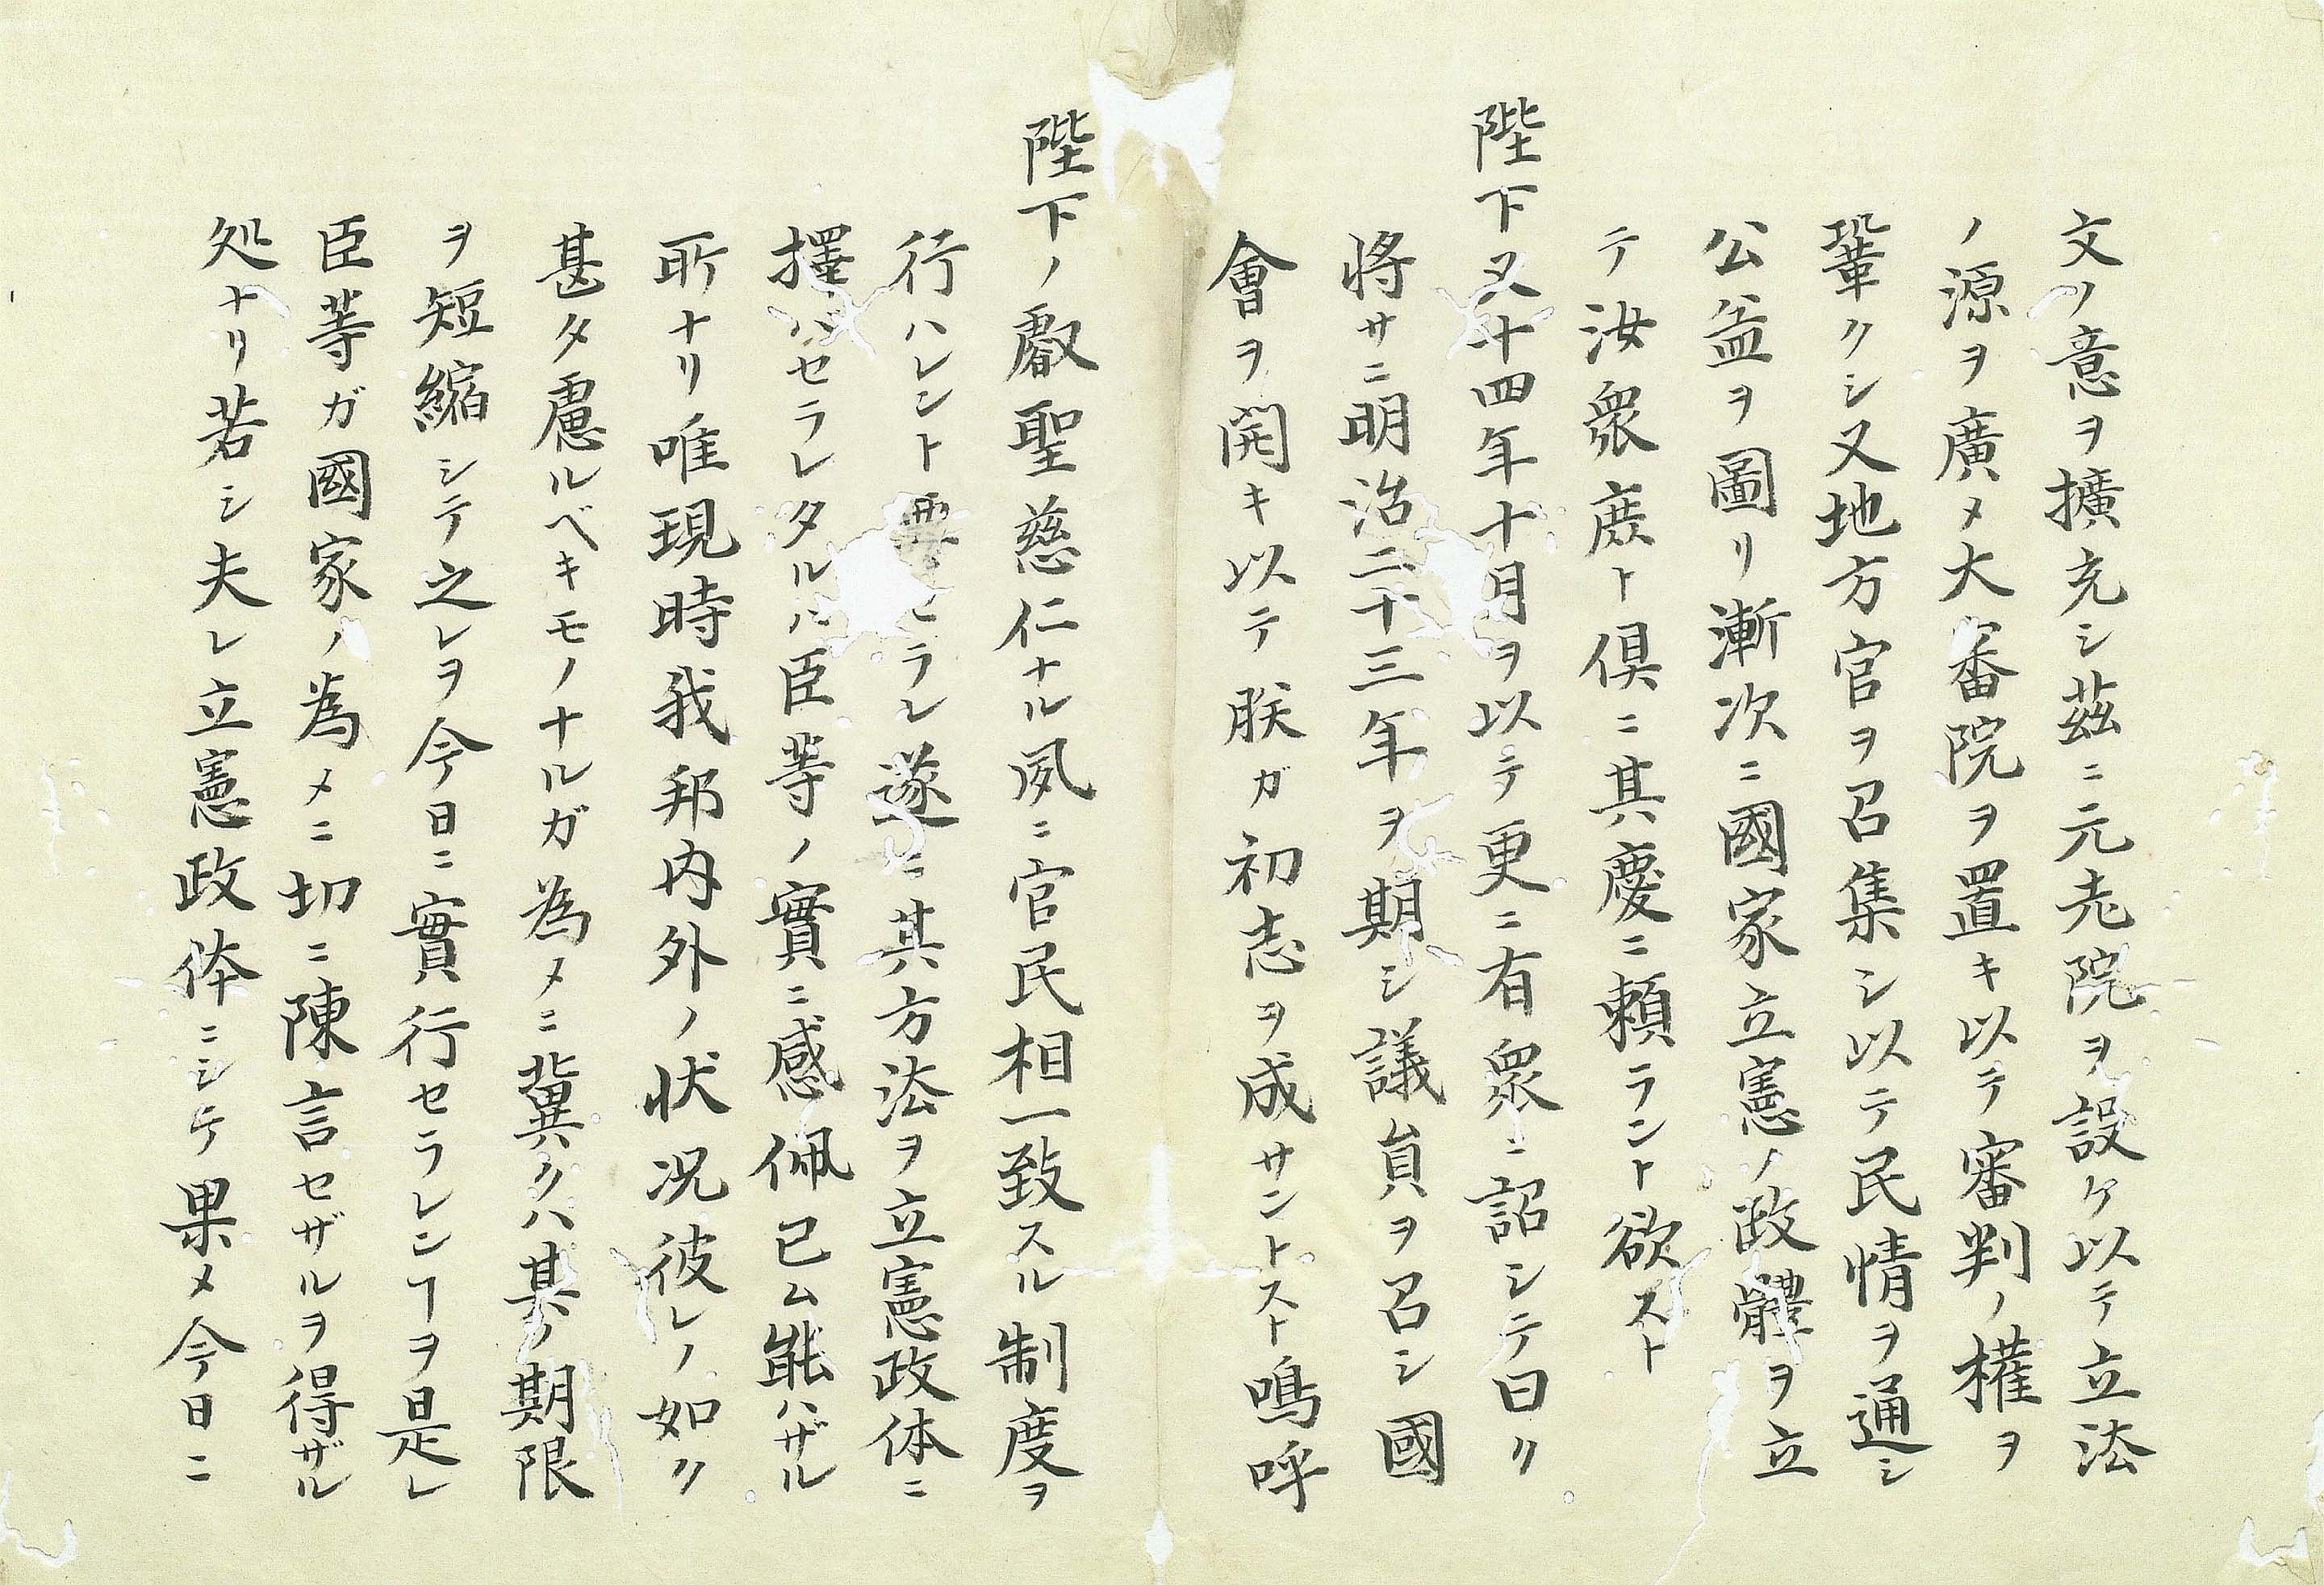 文ノ意ヲ擴充シ茲ニ元老院ヲ設ケ以テ立法
ノ源ヲ廣メ大審院ヲ置キ以テ審判ノ權ヲ
鞏クシ又地方官ヲ召集シ以テ民情ヲ通シ
公益ヲ圖リ漸次ニ國家立憲ノ政體ヲ立
テ汝衆庶ト倶ニ其慶ニ頼ラント欲スト
陛下又十四年十月ヲ以テ更ニ有衆ニ詔シテ曰ク
将サニ明治二十三年ヲ期シ議員ヲ召シ國
會ヲ開キ以テ朕ガ初志ヲ成サントスト鳴呼
陛下ノ叡聖慈仁ナル夙ニ官民相一致スル制度ヲ
行ハレント要セラレ遂ニ其方法ヲ立憲政体ニ
擇バセラレタルハ臣等ノ實ニ感佩已ム能ハザル
所ナリ唯現時我邦内外ノ状况彼レノ如ク
甚タ慮ルベキモノナルガ為メニ冀クハ其ノ期限
ヲ短縮シテ之レヲ今日ニ實行セラレンヿヲ是レ
臣等ガ國家ノ為メニ切ニ陳言セザルヲ得ザル
処ナリ若シ夫レ立憲政体ニシテ果メ今日ニ